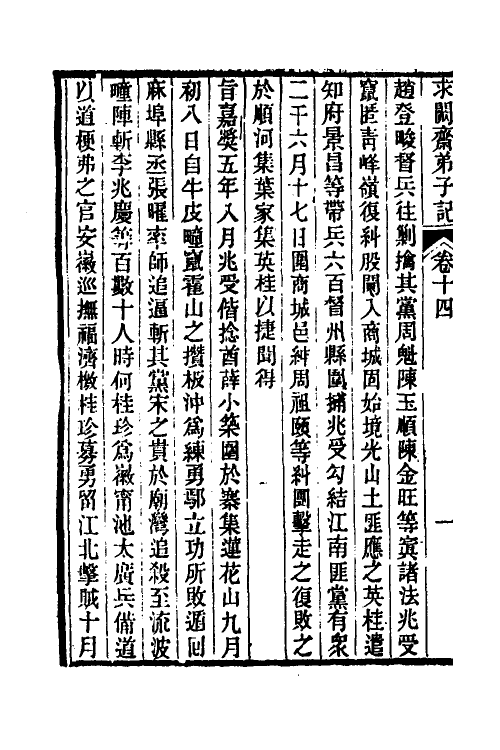 求闕齋弟子記　卷十四　一
趙登畯督兵往剿擒其黨周魁陳玉順陳金旺等寘諸法兆受
竄匿靑峰嶺復糾股闖入商城固始境光山土匪應之英桂遣
知府景昌等帶兵六百督州縣圍捕兆受勾結江南匪黨有衆
二千六月十七日圍商城邑紳周祖頤等糾團擊走之復敗之
於順河集葉家集英桂以捷聞得
旨嘉獎五年八月兆受偕捻酋薛小築圍於寨集蓮花山九月
初八日自牛皮疃竄霍山之攢板沖爲練勇鄢立功所敗遁回
麻埠縣丞張曜率師追逼斬其黨宋之貫於廟灣追殺至流波
疃陣斬李兆慶等百數十人時何桂珍爲徽甯池太廣兵備道
以道梗弗之官安徽巡撫福濟檄桂珍募勇留江北擊賊十月